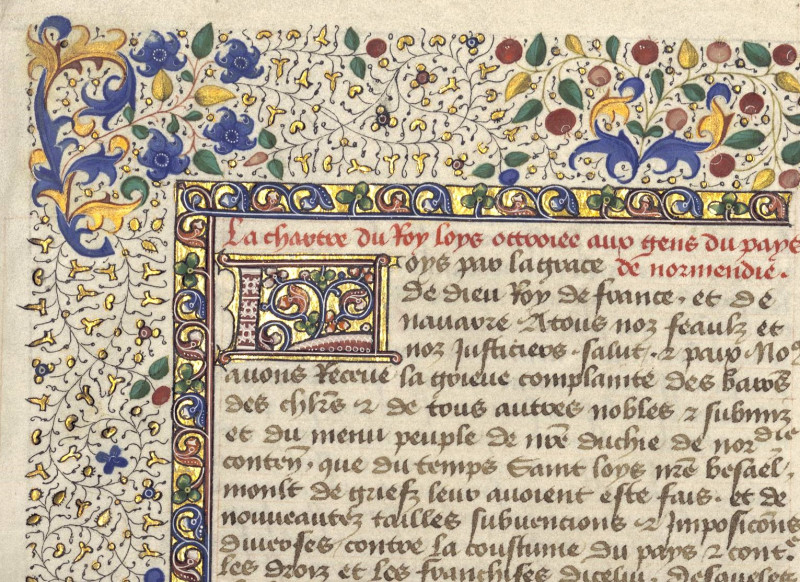 La chartre du Roy loys ottroiee aux gens du pays
de normendie.
Loys par la grace
de dieu Roy de france, et de
navarre. A tous noz feaulz et
noz Justiciers. salut. & paix. No9
avons Receue la grieve complainte des baros
des chlrs & de tous autres nobles & subgiez
et du menu peuple de nre duchie de nor die
conten, que du temps Saint loys nre besael,
moult de griefz leur avoient este fais. et de
nouveautez tailles subvencions & Imposicons
diverses, contre la coustume du pays & cont e
les droiz et les franchises dicelui. desquelles